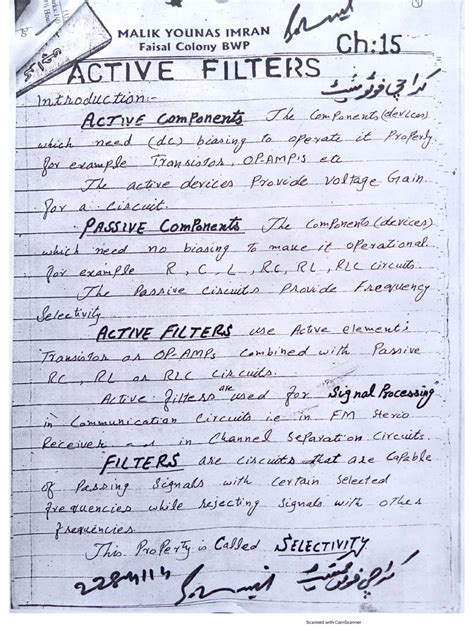 MALIK YOUNAS IMRAN
Faisal Colony BWP
Ch:15
ACTIVE FILTERS
کراچی فوٹوسٹیٹ
Introduction:-
ACTIVE Components The Components (devices)
which need (dc) biasing to operate it Properly
for example Transistor, OP.AMPs etc
The active devices Provide Voltage Gain
for a circuit.
PASSIVE Components The Components (devices)
which need no biasing to make it operational
for example R, C, L, RC, RL, RLC circuits
The Passive Circuits Provide Frequency
Selectivity
ACTIVE FILTERS use Active element;
Transistor or OP-AMPs Combined with Passive
RC, RL or RLC Circuits.
Active filters are used for "Signal Processing"
in Communication Circuits i.e in FM Stereo
Receiver and in Channel Separation Circuits.
FILTERS are circuits that are Capable
of Passing Signals with Certain Selected
frequencies while rejecting Signals with other
frequencies.
This Property is Called SELECTIVITY
کراچی فوٹوسٹیٹ
Scanned with CamScanner